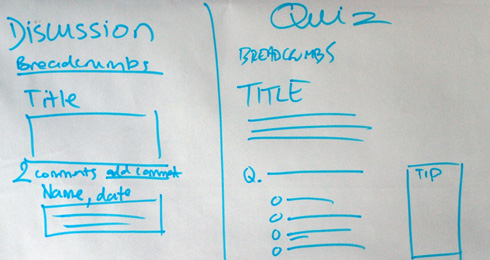 Discussion
Breadcrumbs
Title
2 comments add comment
Name, date
Quiz
BREADCRUMBS
TITLE
Q.
TIP